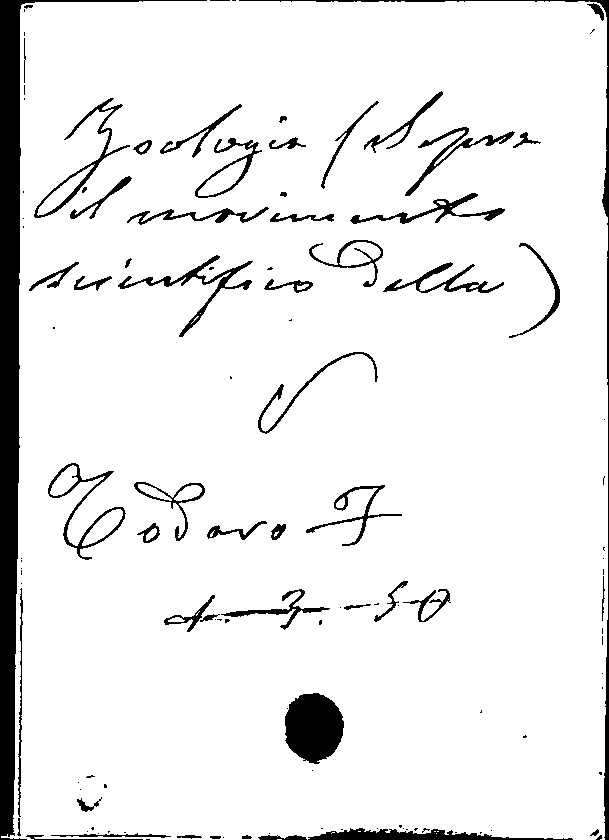 Zoologia (Sopra
il movimento
scientifico della)
Todaro F
A. 3. 50